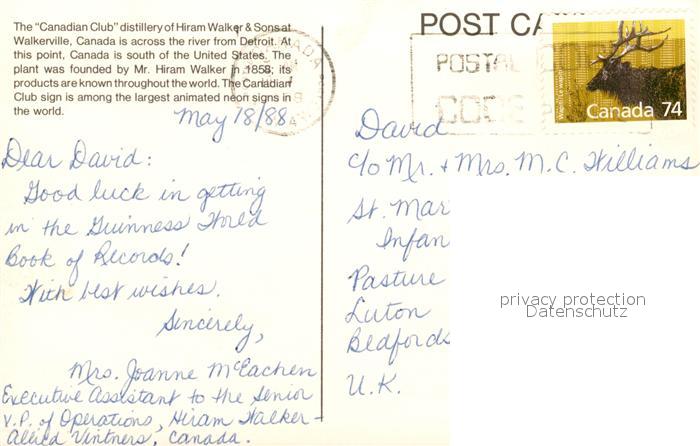 The "Canadian Club" distillery of Hiram Walker & Sons at
Walkerville, Canada is across the river from Detroit. At
this point, Canada is south of the United States. The
plant was founded by Mr. Hiram Walker in 1858; its
products are known throughout the world. The Canadian
Club sign is among the largest animated neon signs in
the world.
May 18/88
Dear David:
Good luck in getting
in the Guinness World
Book of Records!
With best wishes.
Sincerely,
Mrs. Joanne McEachen
Executive Assistant to the Senior
V.P. of Operations, Hiram Walker-
Allied Vintners, Canada.
POST CA
POSTAL CODE
CODE
Canada 74
David
c/o Mr. + Mrs. M.C. Williams
St. Mar
Infan
Pasture
Luton
Bedfords
U.K.
privacy protection
Datenschutz